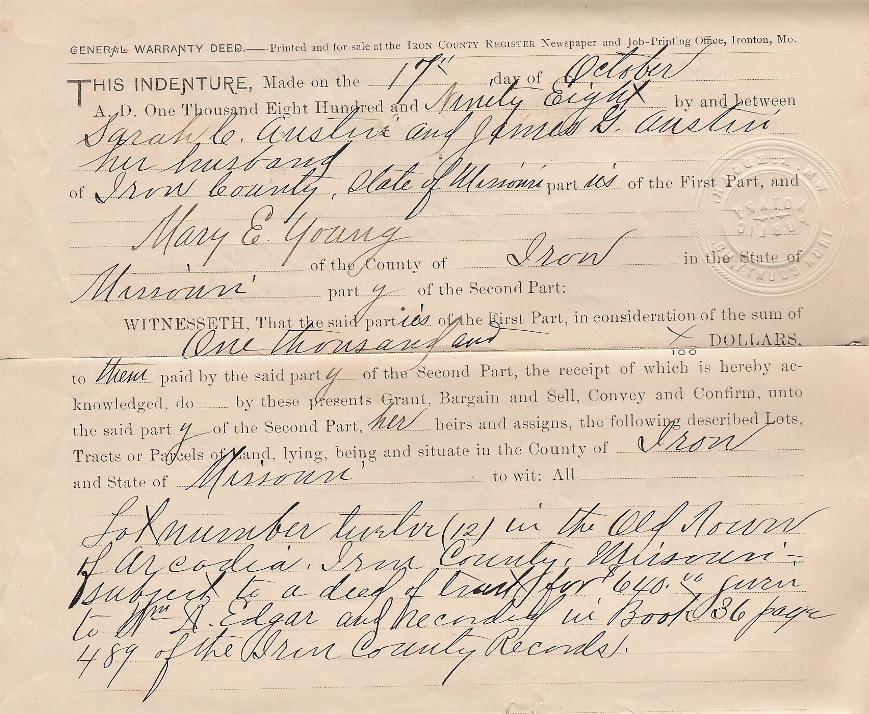 GENERAL WARRANTY DEED.——Printed and for sale at the IRON COUNTY REGISTER Newspaper and Job-Printing Office, Ironton, Mo.
THIS INDENTURE, Made on the 17th day of October
A. D. One Thousand Eight Hundred and Ninety Eight by and between
Sarah C. Austin and James G. Austin
her husband
of Iron County, State of Missouri part ies of the First Part, and
Mary E. Young
of the County of Iron in the State of
Missouri part y of the Second Part:
WITNESSETH, That the said parties of the First Part, in consideration of the sum of
One thousand and X/100 DOLLARS,
to them paid by the said party of the Second Part, the receipt of which is hereby ac-
knowledged, do by these presents Grant, Bargain and Sell, Convey and Confirm, unto
the said party of the Second Part, her heirs and assigns, the following described Lots,
Tracts or Parcels of Land, lying, being and situate in the County of Iron
and State of Missouri to wit: All
Lot number twelve (12) in the Old Town
of Arcadia, Iron County, Missouri-
subject to a deed of trust for $640.00 given
to Wm R. Edgar and recorded in Book 36 page
489 of the Iron County Records.
NOTARY
PUBLIC
IRON COUNTY, MO.